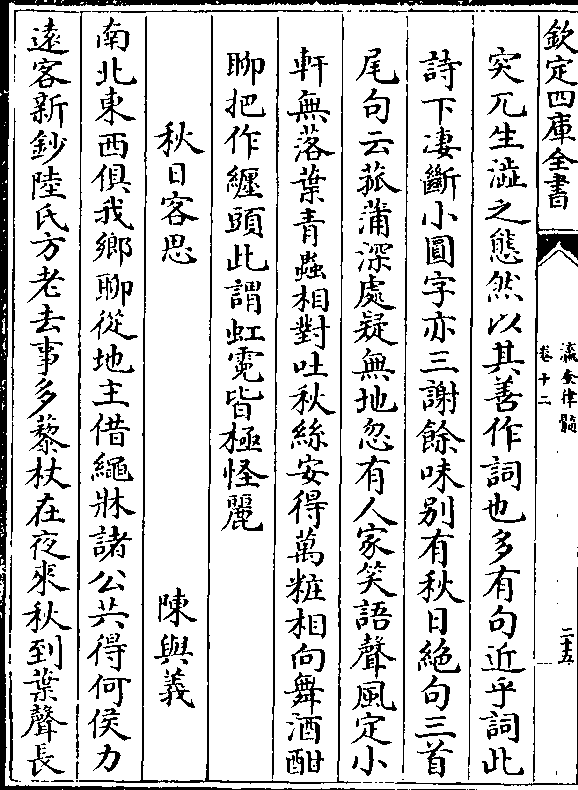 欽定四庫全書
瀛奎律髓
卷十二
二十五
突兀生澁之態然以其善作詞也多有句近乎詞此
詩下凄斷小圓字亦三謝餘味别有秋日絶句三首
尾句云菰蒲深處疑無地忽有人家笑語聲風定小
軒無落葉青蟲相對吐秋絲安得萬粧相向舞酒酣
聊把作纏頭此謂虹霓皆極怪麗
秋日客思 陳與義
南北東西俱我鄉聊從地主借繩牀諸公共得何侯力
逺客新鈔陸氏方老去事多藜杖在夜來秋到葉聲長